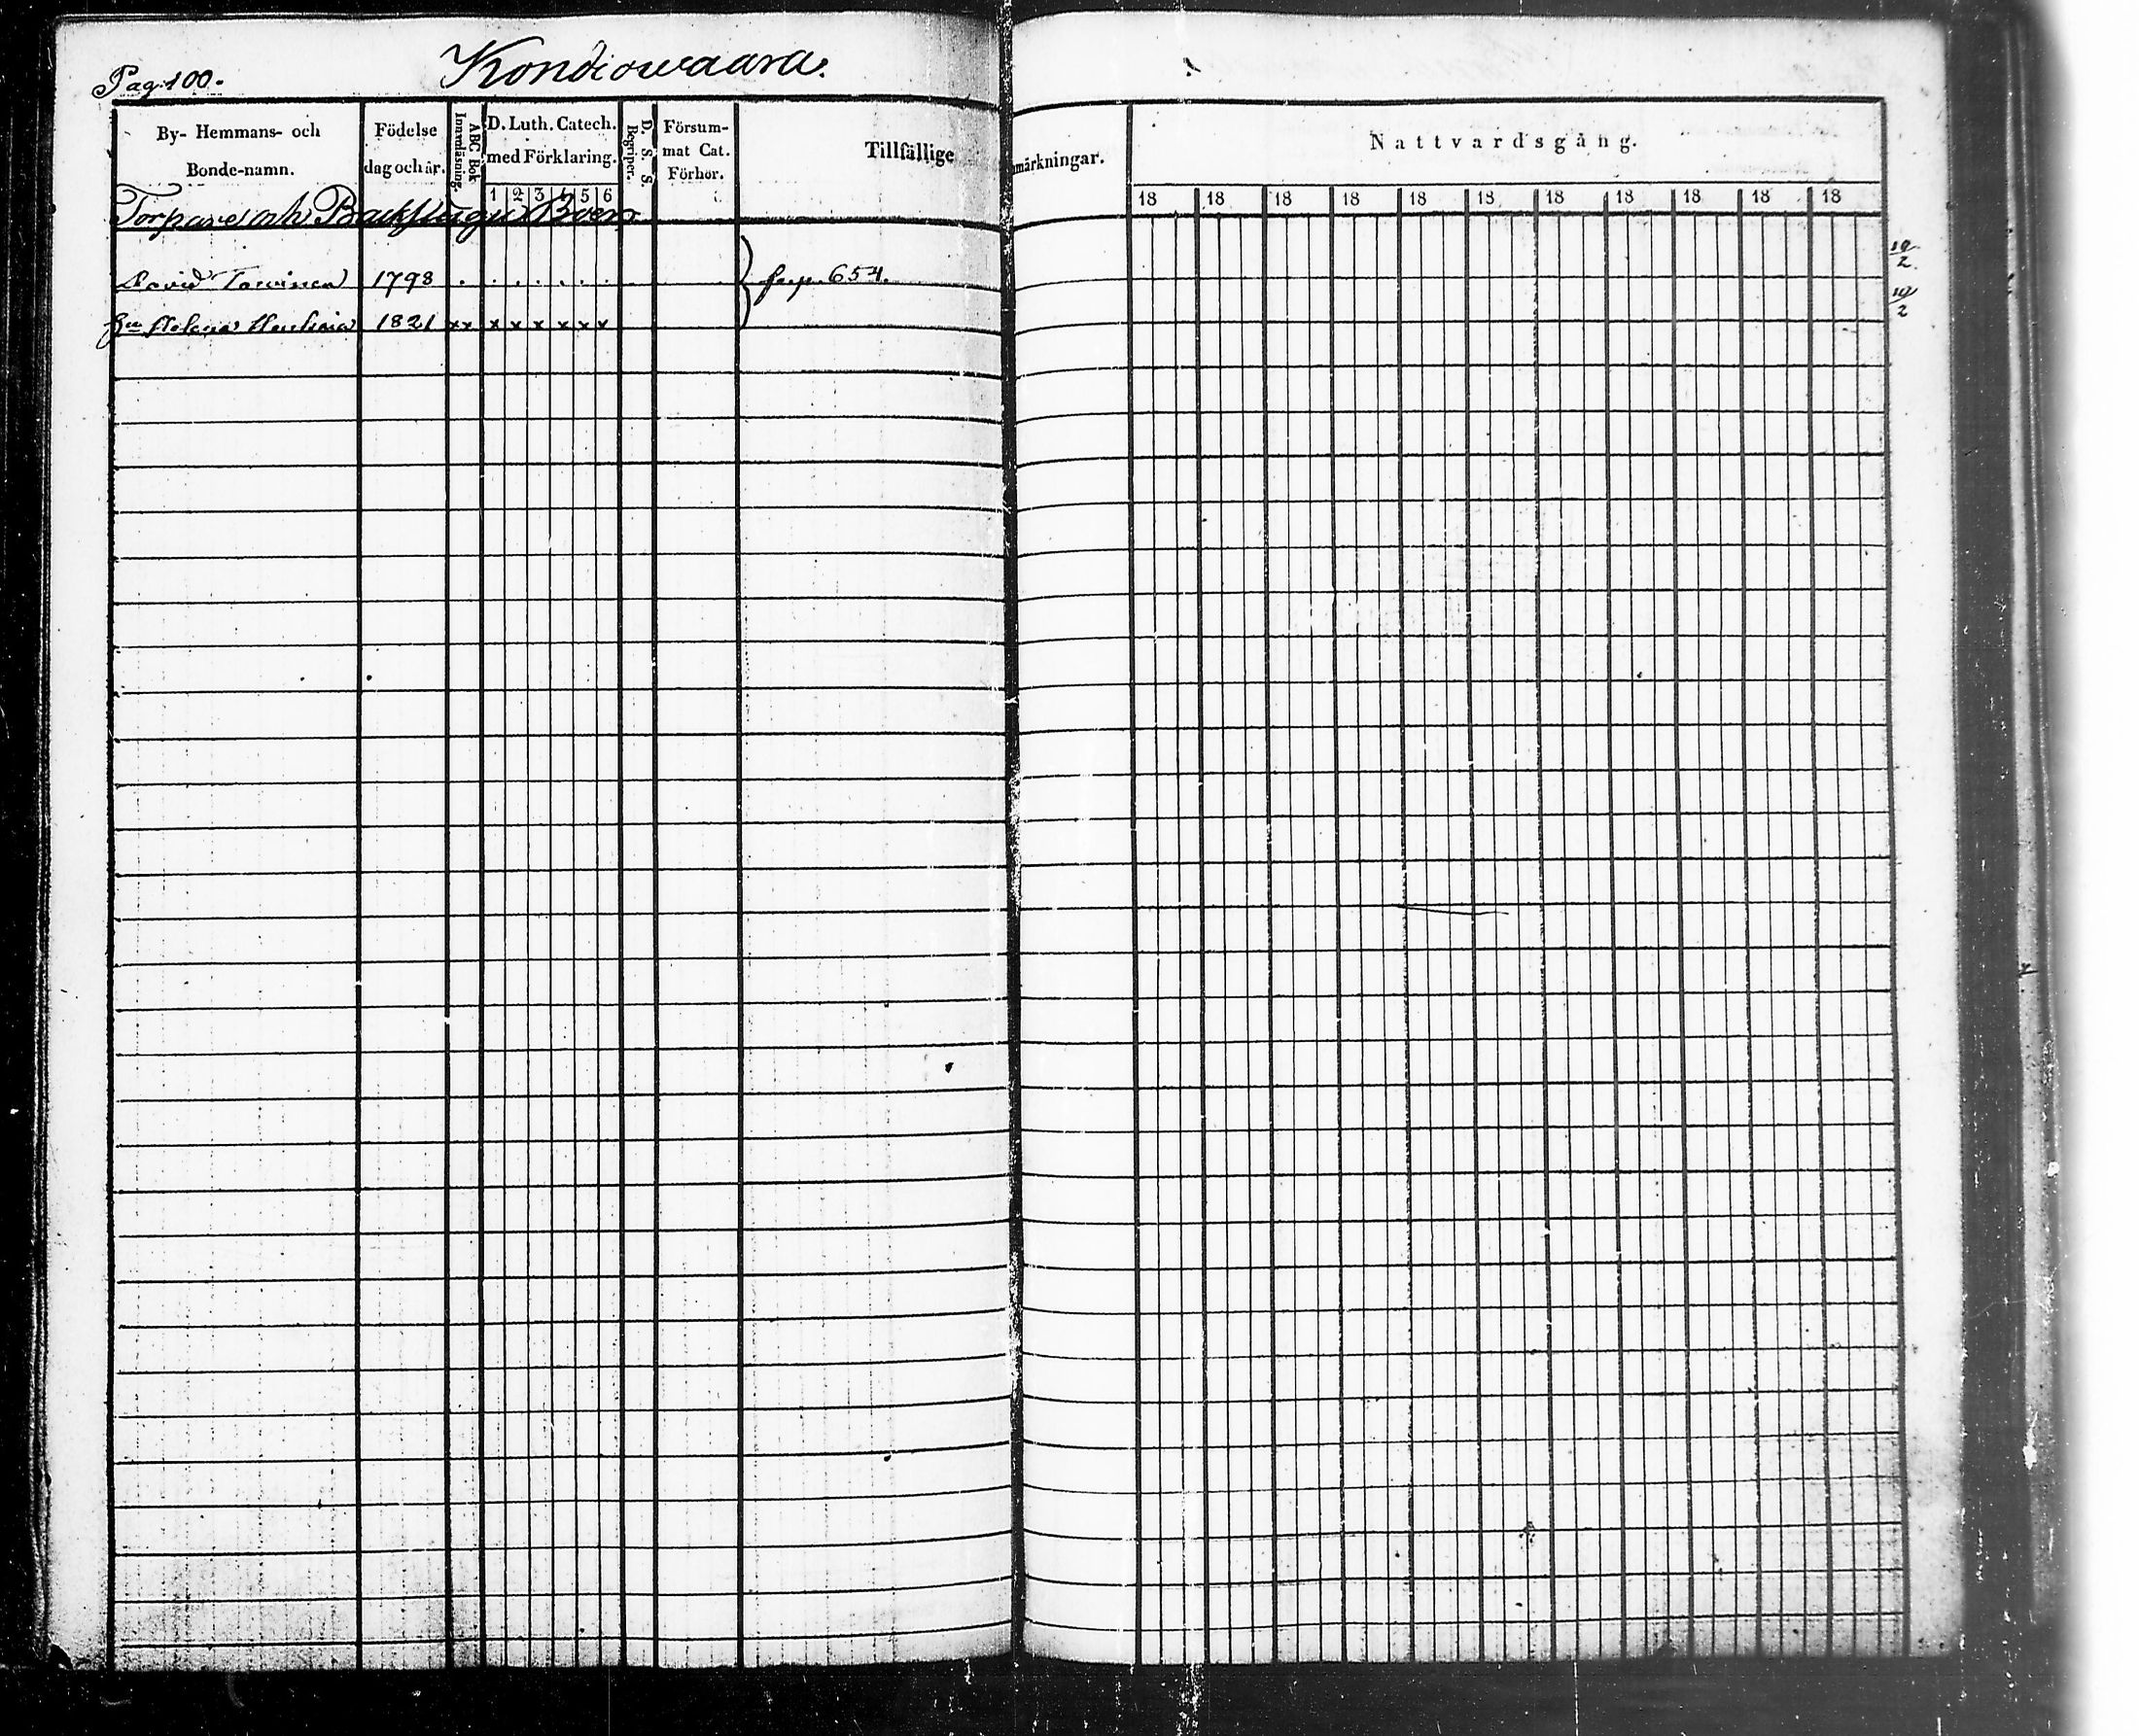 Pag. 100.
Kondiowaara.
By- Hemmans- och Bonde-namn.
Födelse dag och år.
ABC Bok Innanläsning.
D. Luth. Catech. med Förklaring.
1 2 3 4 5 6
D. S. S. Begriper.
Försum- mat Cat. Förhör.
Tillfällige
nmärkningar.
Nattvardsgång.
18 18 18 18 18 18 18 18 18 18 18
Torpare och Backstugu Boer
David 1793 . . . . . . . . 654. 10/2
Hu Helena 1821 x x x x x x x x 10/2